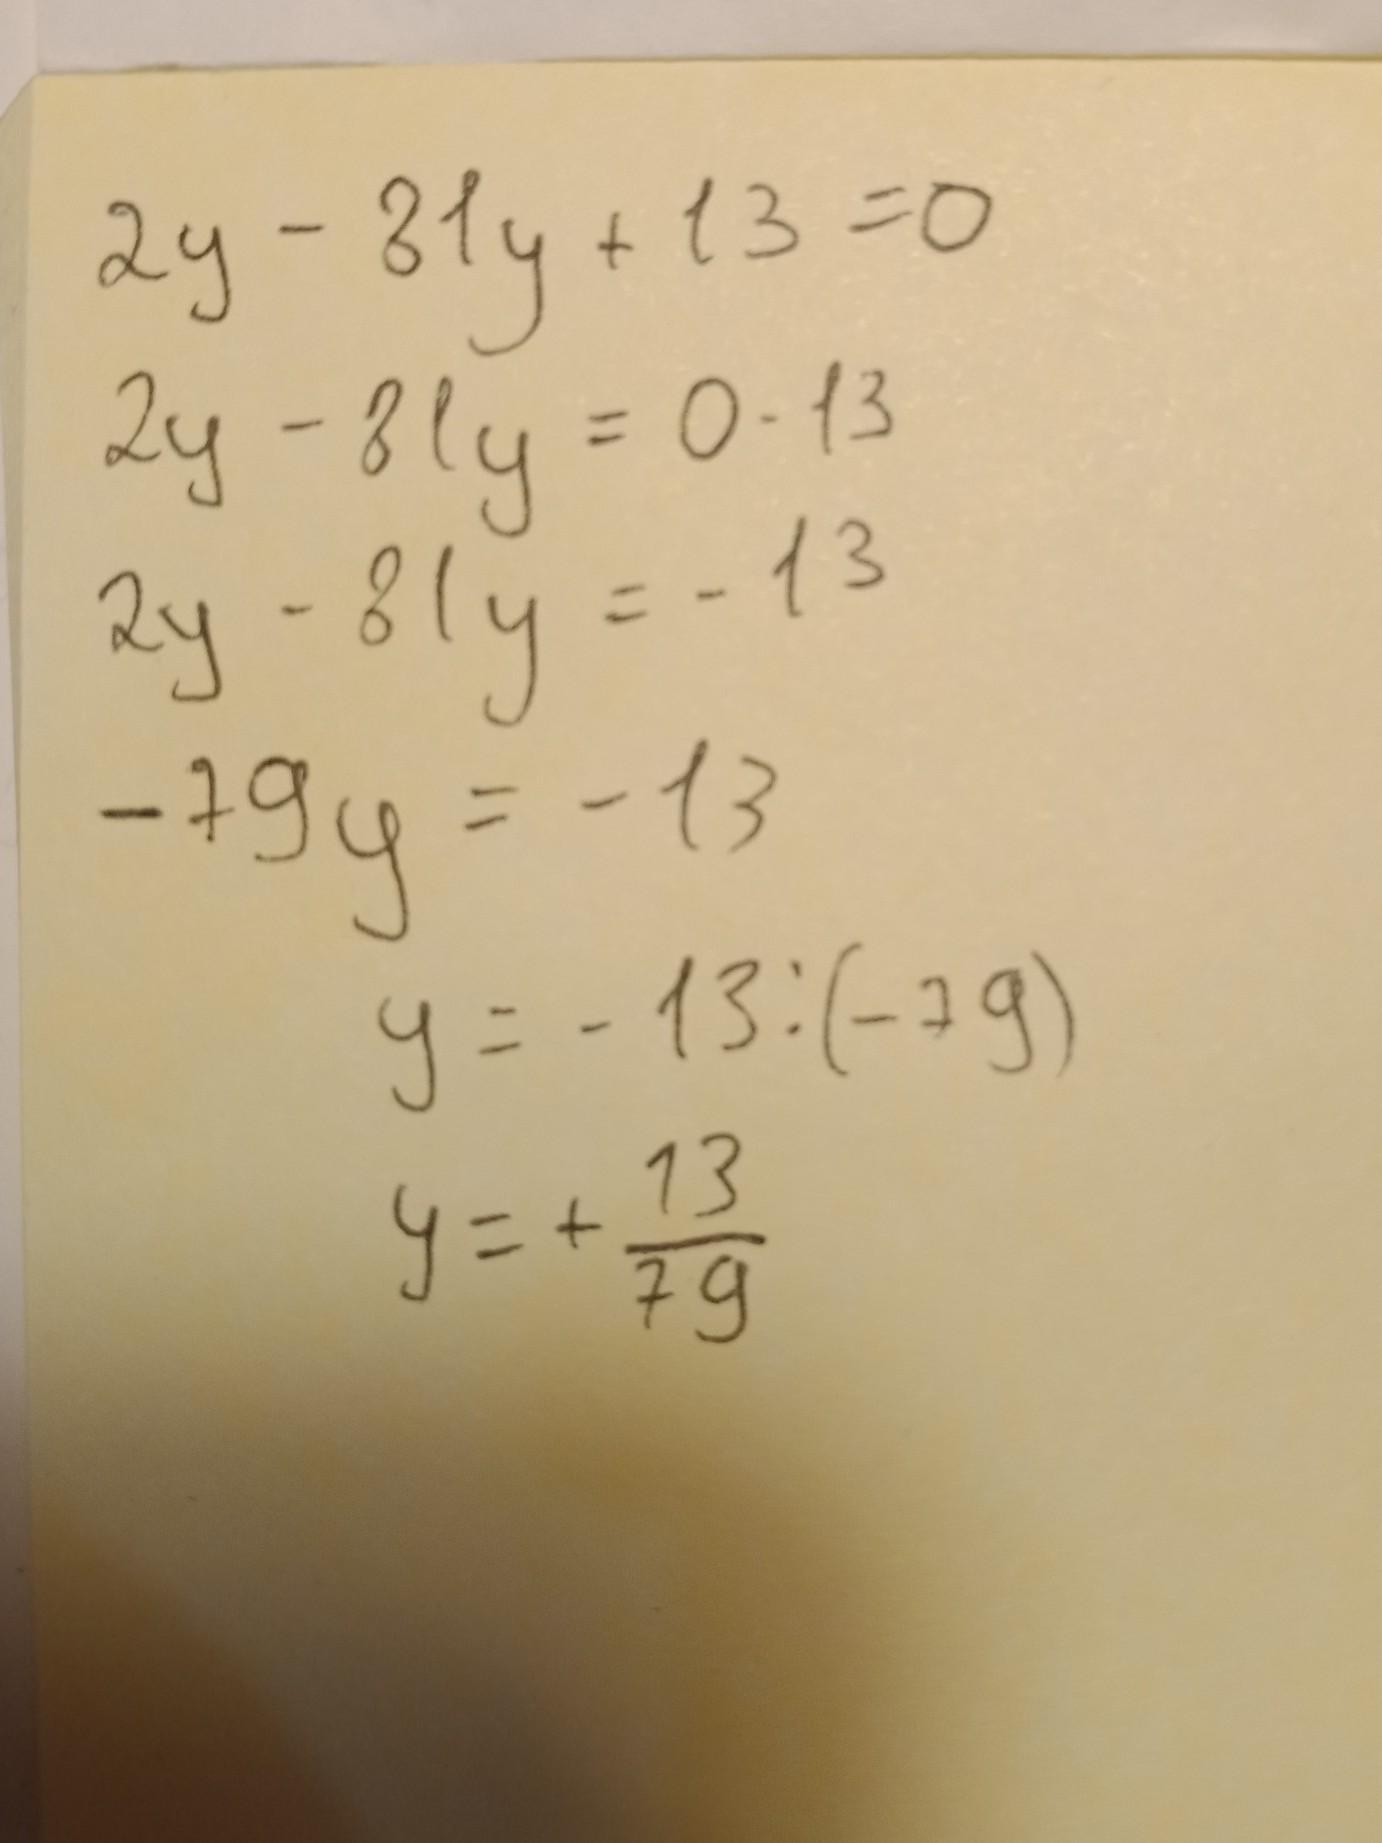 2y - 81y + 13 = 0
2y - 81y = 0 - 13
2y - 81y = - 13
- 79y = - 13
y = - 13 : (- 79)
y = + 13/79